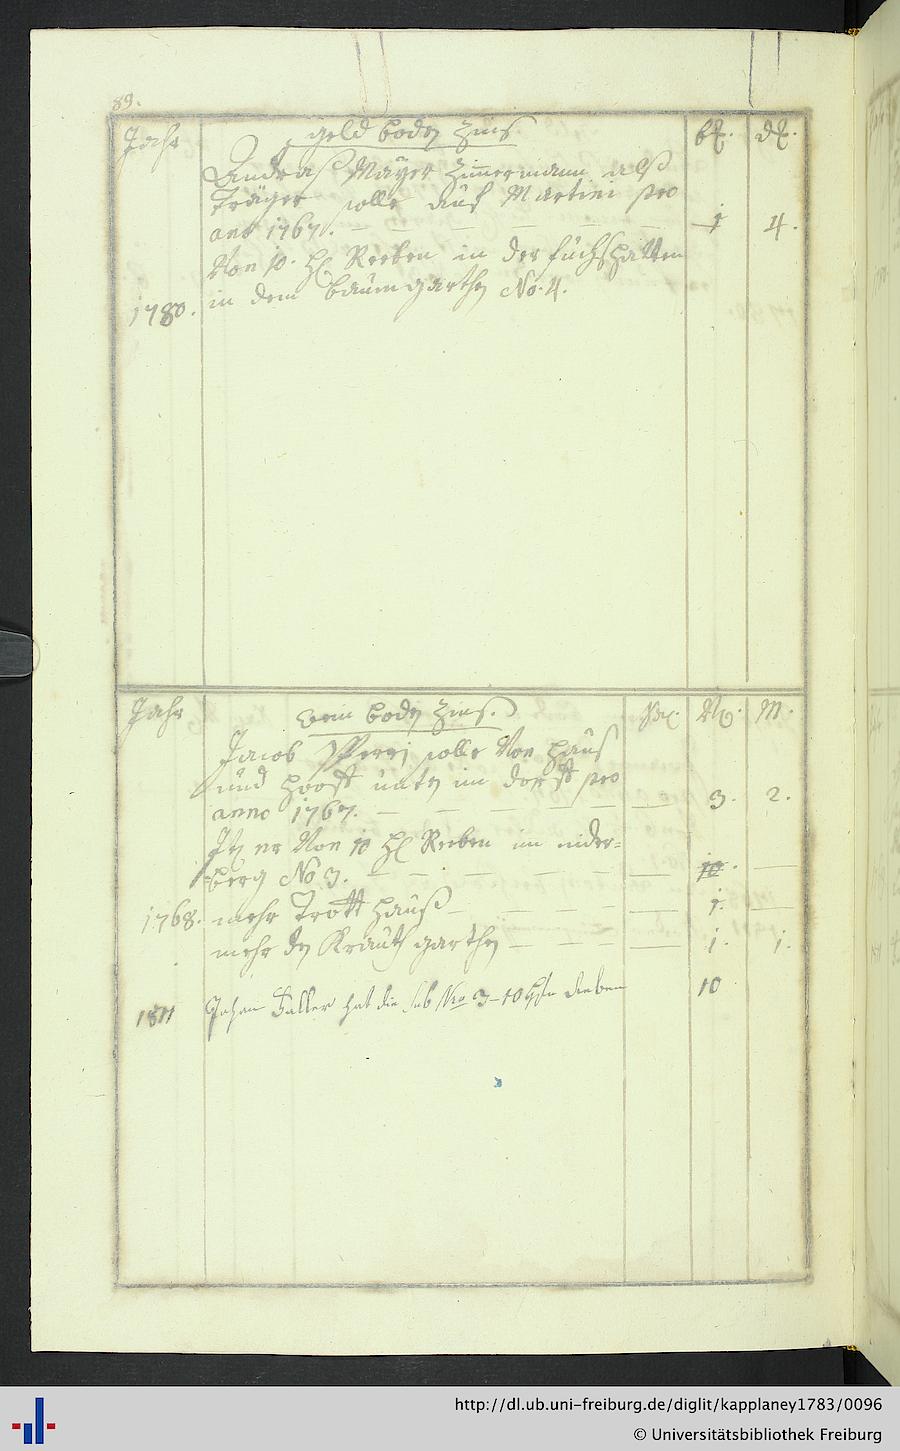 89.
Jahr geld bodenzins. bz. dl.
Andreas Mäyer Zimmermann als
Träger solle auf Martini pro
ano 1767. 1 4.
Von 10. Reeben in der
1780. in dem baumgarthen No. 4.
Jahr wein boden zins. M.
Jacob solle Von Hauß
und unten im dorff pro
anno 1767. 3. 2.
Von 10 Reeben im nider=
berg No 3. 10.
1768. mehr Trott Hauß 1.
mehr den Krauth garthen 1. 1.
1811 Johann Saller hat die sub No 3 - 10 Reben 10
http://dl.ub.uni-freiburg.de/diglit/kapplaney1783/0096
© Universitätsbibliothek Freiburg